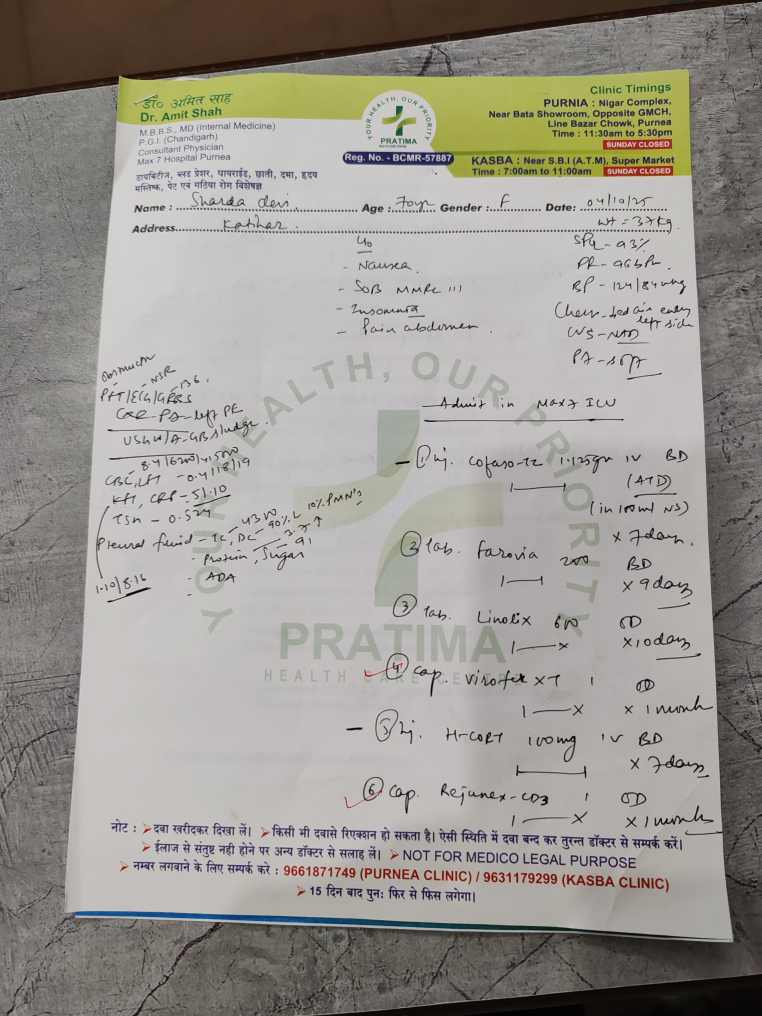 डॉ० अमित साह
Dr. Amit Shah
M.B.B.S., MD (Internal Medicine)
P.G.I. (Chandigarh)
Consultant Physician
Max 7 Hospital Purnea
डायबिटीज, ब्लड प्रेशर, थायराईड, छाती, दमा, हृदय
मस्तिष्क, पेट एवं गठिया रोग विशेषज्ञ
YOUR HEALTH, OUR PRIORITY
PRATIMA
HEALTH CARE CENTRE
Reg. No. - BCMR-57887
Clinic Timings
PURNIA : Nigar Complex,
Near Bata Showroom, Opposite GMCH,
Line Bazar Chowk, Purnea
Time : 11:30am to 5:30pm
SUNDAY CLOSED
KASBA : Near S.B.I (A.T.M), Super Market
Time : 7:00am to 11:00am SUNDAY CLOSED
Name : Sharda devi Age : 70yr Gender : F Date: 04/10/25
Address Katihar
Wt = 37kg
c/o
- Nausea
- SOB MMRC III
- Insomnia
- Pain abdomen
SPO2 - 93%
PR - 96bpm
BP - 124/84mmhg
Chest - ded air entry left side
CVS - NAD
PA - soft
NSR 136
PFT/ECG/GRBS
CXR-PA-left PE
USG W/A-GB sludge
8.4/6200/41500
CBC, LFT - 0.4/18/19
KFT, CRP - 51.10
TSH - 0.524
Pleural fluid - TC, DC - 90% L 10% PMN's
- Protein, Sugar 91
- ADA
1.10/8.16
Admit in Max7 ICU
- ① Inj. Cofaso-TZ 1.125gm IV BD
(ATD)
(in 100ml NS)
x 7days
② Tab. Farovia 200 BD
x 9days
③ Tab. Linolix 600 OD
x 10days
④ Cap. Virofex XT 1 OD
x 1month
- ⑤ Inj. H-CORT 100mg IV BD
x 7days
⑥ Cap. Rejunex-CD3 1 OD
x 1month
YOUR HEALTH, OUR PRIORITY
PRATIMA
HEALTH CARE CENTRE
नोट : ➤ दवा खरीदकर दिखा लें। ➤ किसी भी दवासे रिएक्शन हो सकता है। ऐसी स्थिति में दवा बन्द कर तुरन्त डॉक्टर से सम्पर्क करें।
➤ ईलाज से संतुष्ट नही होने पर अन्य डॉक्टर से सलाह लें। ➤ NOT FOR MEDICO LEGAL PURPOSE
➤ नम्बर लगवाने के लिए सम्पर्क करे : 9661871749 (PURNEA CLINIC) / 9631179299 (KASBA CLINIC)
➤ 15 दिन बाद पुनः फिर से फिस लगेगा।